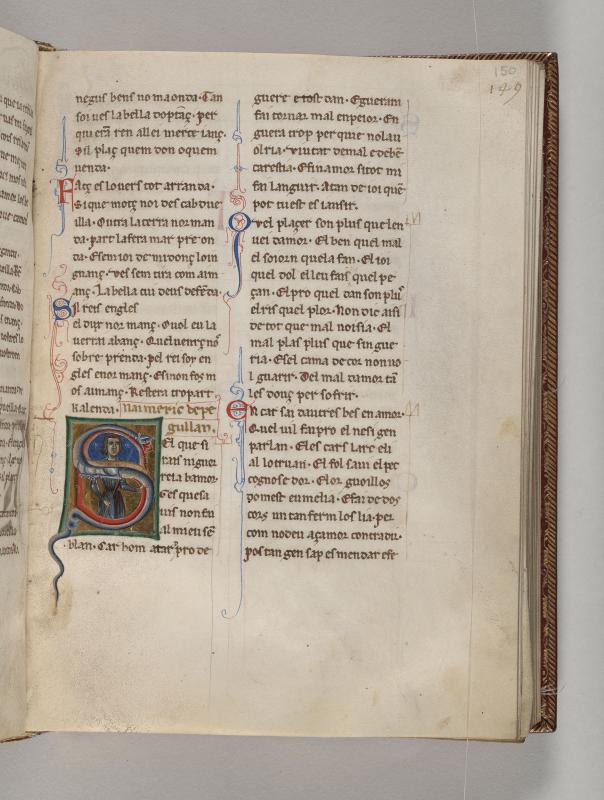 150
149
negus bens no ma onda. Can
soi ues la bella doptanç. per
qui eiā ren al lei merce ianç.
Sil plaç quem don o quem
uenda.
Patç es lo uers tot a randa.
Si que motç noi des cab due
illa. Outra la terra norman
da. part la fera mar preon
da. E sem ioi de midonç loin
gnanç. ues sem tira com aim
anç. La bella cui deus defēda.
Sil reis engles
el dux normanç. Quol eu la
uerrai abanç.
sobre prenda. pel rei soy en
gles e normanç. E si non fos m
os aimanç. Restera tro part
kalenda. Naimeric de pe
gullan.
El que si
rais niguer
reia bamor
Ges quesa
uis non fu
al mieu sē
blan. Car hom a tart pro de
guere e tost dan. Egueram
fai tornar mal en peior. En
guera trop per que no la u
olria. riutat de mal e de bē
carestia. E fin amor si tot mi
fai languir. A tan de ioi que
pot tuest es lausir.
Qvel plaçer son plus que len
uei damor. El ben quel mal
el soiorn quela fan. El ioi
quel dol e leu fais quel pe
çan. El pro quel dan son plus
el ris quel plor. Non dic aisi
de tot que mal noi sia. El
mal plas plus que sin gue
ria. E sel cama de cor non uo
l guarir. Del mal damor tā
les donç per sofrir.
En car sai dautres bes en amor.
Quel uil fai pro el nesi gen
parlan. El es cars larc eli
al lo truan. El fol saui el pec
cognosedor. El orguoillos
domest eumelia. E fai de dos
cors un tan ferm los lia. per
com no deu a çamor contradir.
pos tan gen sap esmendar e fe